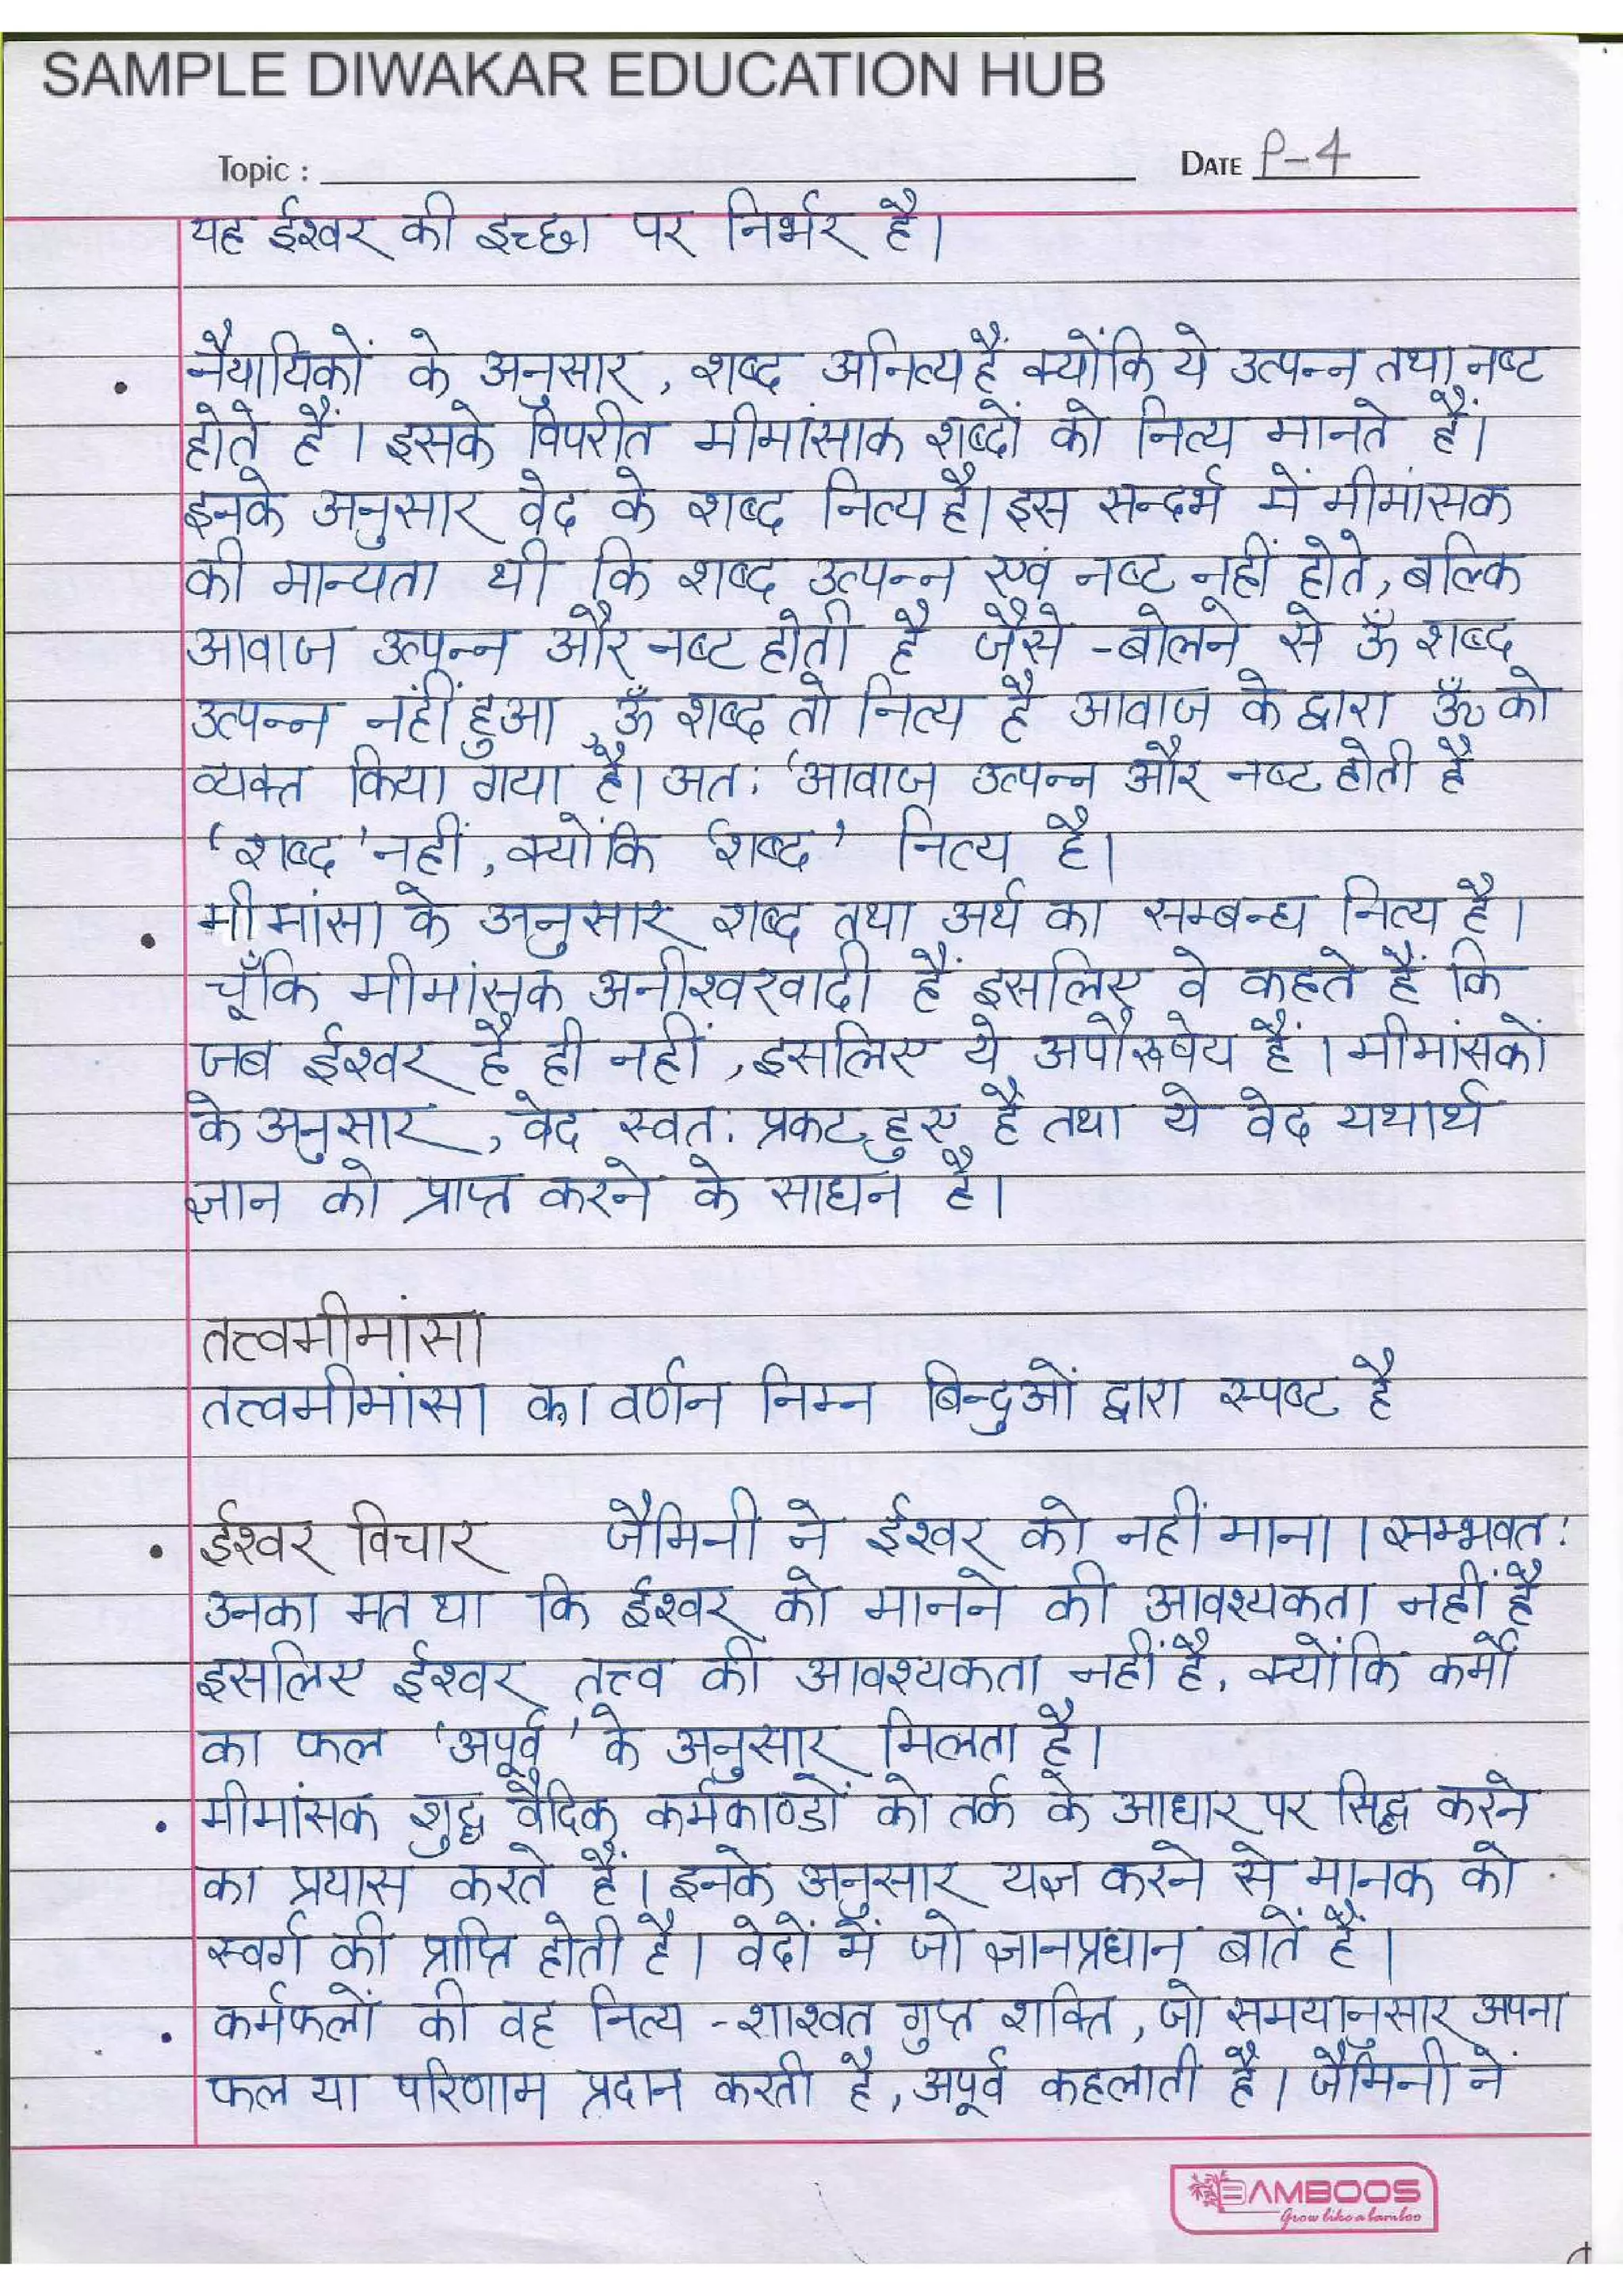 SAMPLE DIWAKAR EDUCATION HUB
Topic : DATE P-4
यह ईश्वर की इच्छा पर निर्भर है।
• नैयायिकों के अनुसार, शब्द अनित्य हैं क्योंकि ये उत्पन्न तथा नष्ट
होते हैं। इसके विपरीत मीमांसाक शब्दों को नित्य मानते हैं।
इनके अनुसार वेद के शब्द नित्य है। इस सन्दर्भ में मीमांसक
की मान्यता थी कि शब्द उत्पन्न एवं नष्ट नहीं होते, बल्कि
आवाज उत्पन्न और नष्ट होती है जैसे -बोलने से ऊँ शब्द
उत्पन्न नहीं हुआ, ऊँ शब्द तो नित्य है आवाज के द्वारा ॐ को
व्यक्त किया गया है। अत: 'आवाज उत्पन्न और नष्ट होती है
'शब्द' नहीं, क्योंकि 'शब्द' नित्य है।
• मीमांसा के अनुसार शब्द तथा अर्थ का सम्बन्ध नित्य है।
चूँकि मीमांसक अनीश्वरवादी हैं इसलिए वे कहते हैं कि
जब ईश्वर है ही नहीं, इसलिए ये अपौरूषेय हैं। मीमांसकों
के अनुसार, वेद स्वत: प्रकट हुए है तथा ये वेद यथार्थ
ज्ञान को प्राप्त करने के साधन है।
तत्त्वमीमांसा
तत्त्वमीमांसा का वर्णन निम्न बिन्दुओं द्वारा स्पष्ट है
• ईश्वर विचार जैमिनी ने ईश्वर को नहीं माना। सम्भवत:
उनका मत था कि ईश्वर को मानने की आवश्यकता नहीं है
इसलिए ईश्वर तत्त्व की आवश्यकता नहीं है, क्योंकि कर्मों
का फल 'अपूर्व' के अनुसार मिलता है।
• मीमांसक शुद्ध वैदिक कर्मकाण्डों को तर्क के आधार पर सिद्ध करने
का प्रयास करते हैं। इनके अनुसार यज्ञ करने से मानक को
स्वर्ग की प्राप्ति होती है। वेदों में जो ज्ञानप्रधान बातें हैं।
• कर्मफलों की वह नित्य -शाश्वत गुप्त शक्ति, जो समयानुसार अपना
फल या परिणाम प्रदान करती है, अपूर्व कहलाती है। जैमिनी नें
BAMBOOS
Grow like a bamboo